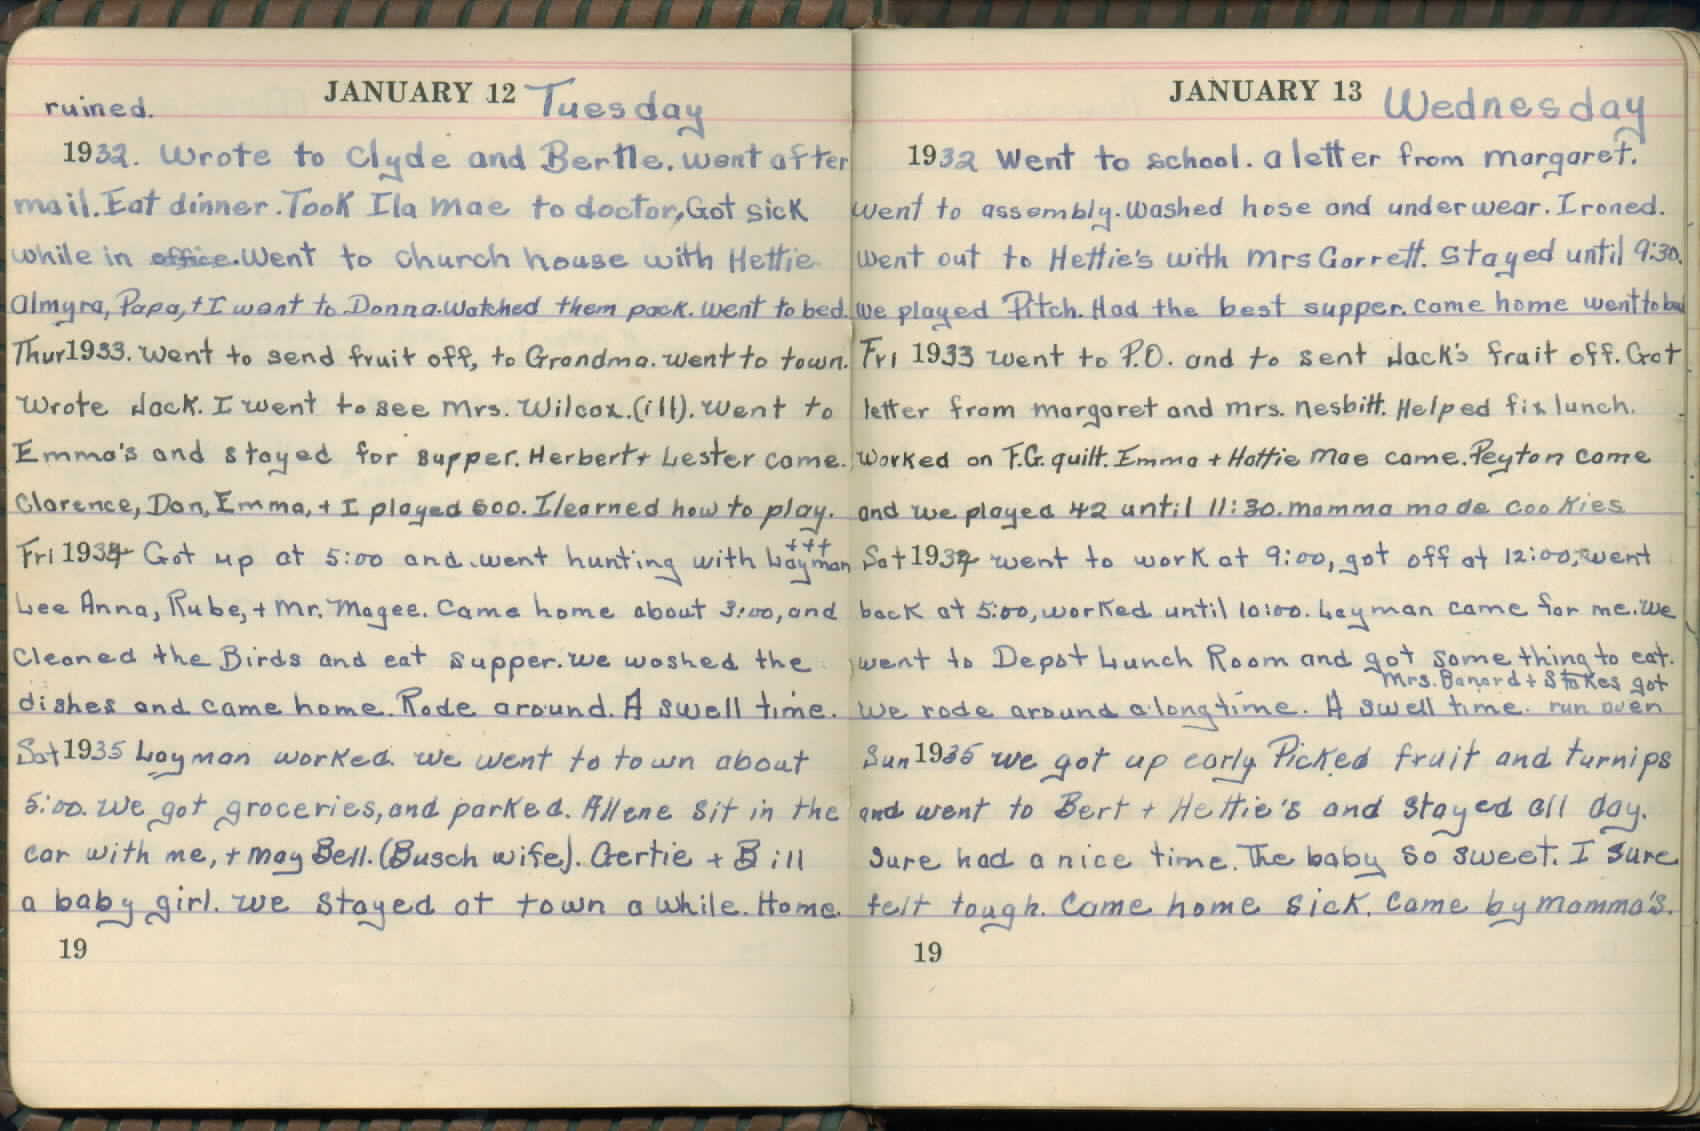 JANUARY 12 Tuesday
ruined.
1932. Wrote to Clyde and Bertle. went after
mail. Eat dinner. Took Ila mae to doctor, Got sick
while in office. Went to church house with Hettie
Almyra, Papa, + I went to Donna. Watched them pack. went to bed.
Thur 1933. Went to send fruit off, to Grandma. went to town.
Wrote Jack. I went to see Mrs. Wilcox. (ill). Went to
Emma's and stayed for supper. Herbert + Lester came.
Clarence, Dan, Emma, + I played 500. I learned how to play.
Fri 1934 Got up at 5:00 and went hunting with Layman +++
Lee Anna, Rube, + Mr. Magee. Came home about 3:00, and
Cleaned the Birds and eat supper. we washed the
dishes and came home. Rode around. A swell time.
Sat 1935 Layman worked. We went to town about
5:00. We got groceries, and parked. Allene sit in the
car with me, + May Bell. (Busch wife). Gertie + Bill
a baby girl. We stayed at town a while. Home.
19
JANUARY 13 Wednesday
1932 Went to school. a letter from margaret.
went to assembly. Washed hose and underwear. Ironed.
Went out to Hettie's with Mrs Garrett. Stayed until 9:30.
We played Pitch. Had the best supper. came home went to bed
Fri 1933 went to P.O. and to sent Jack's frait off. Got
letter from margaret and mrs. Nesbitt. Helped fix lunch.
Worked on F.G. quilt. Emma + Hattie Mae came. Peyton came
and we played 42 until 11:30. Momma made cookies
Sat 1934 went to work at 9:00, got off at 12:00, went
back at 5:00, worked until 10:00. Layman came for me. We
went to Depot Lunch Room and got something to eat.
Mrs. Banard + Stokes got
We rode around a long time. A swell time. run over
Sun 1935 We got up early Picked fruit and turnips
and went to Bert + Hettie's and stayed all day.
Sure had a nice time. The baby so sweet. I sure
felt tough. Came home sick. Came by momma's.
19